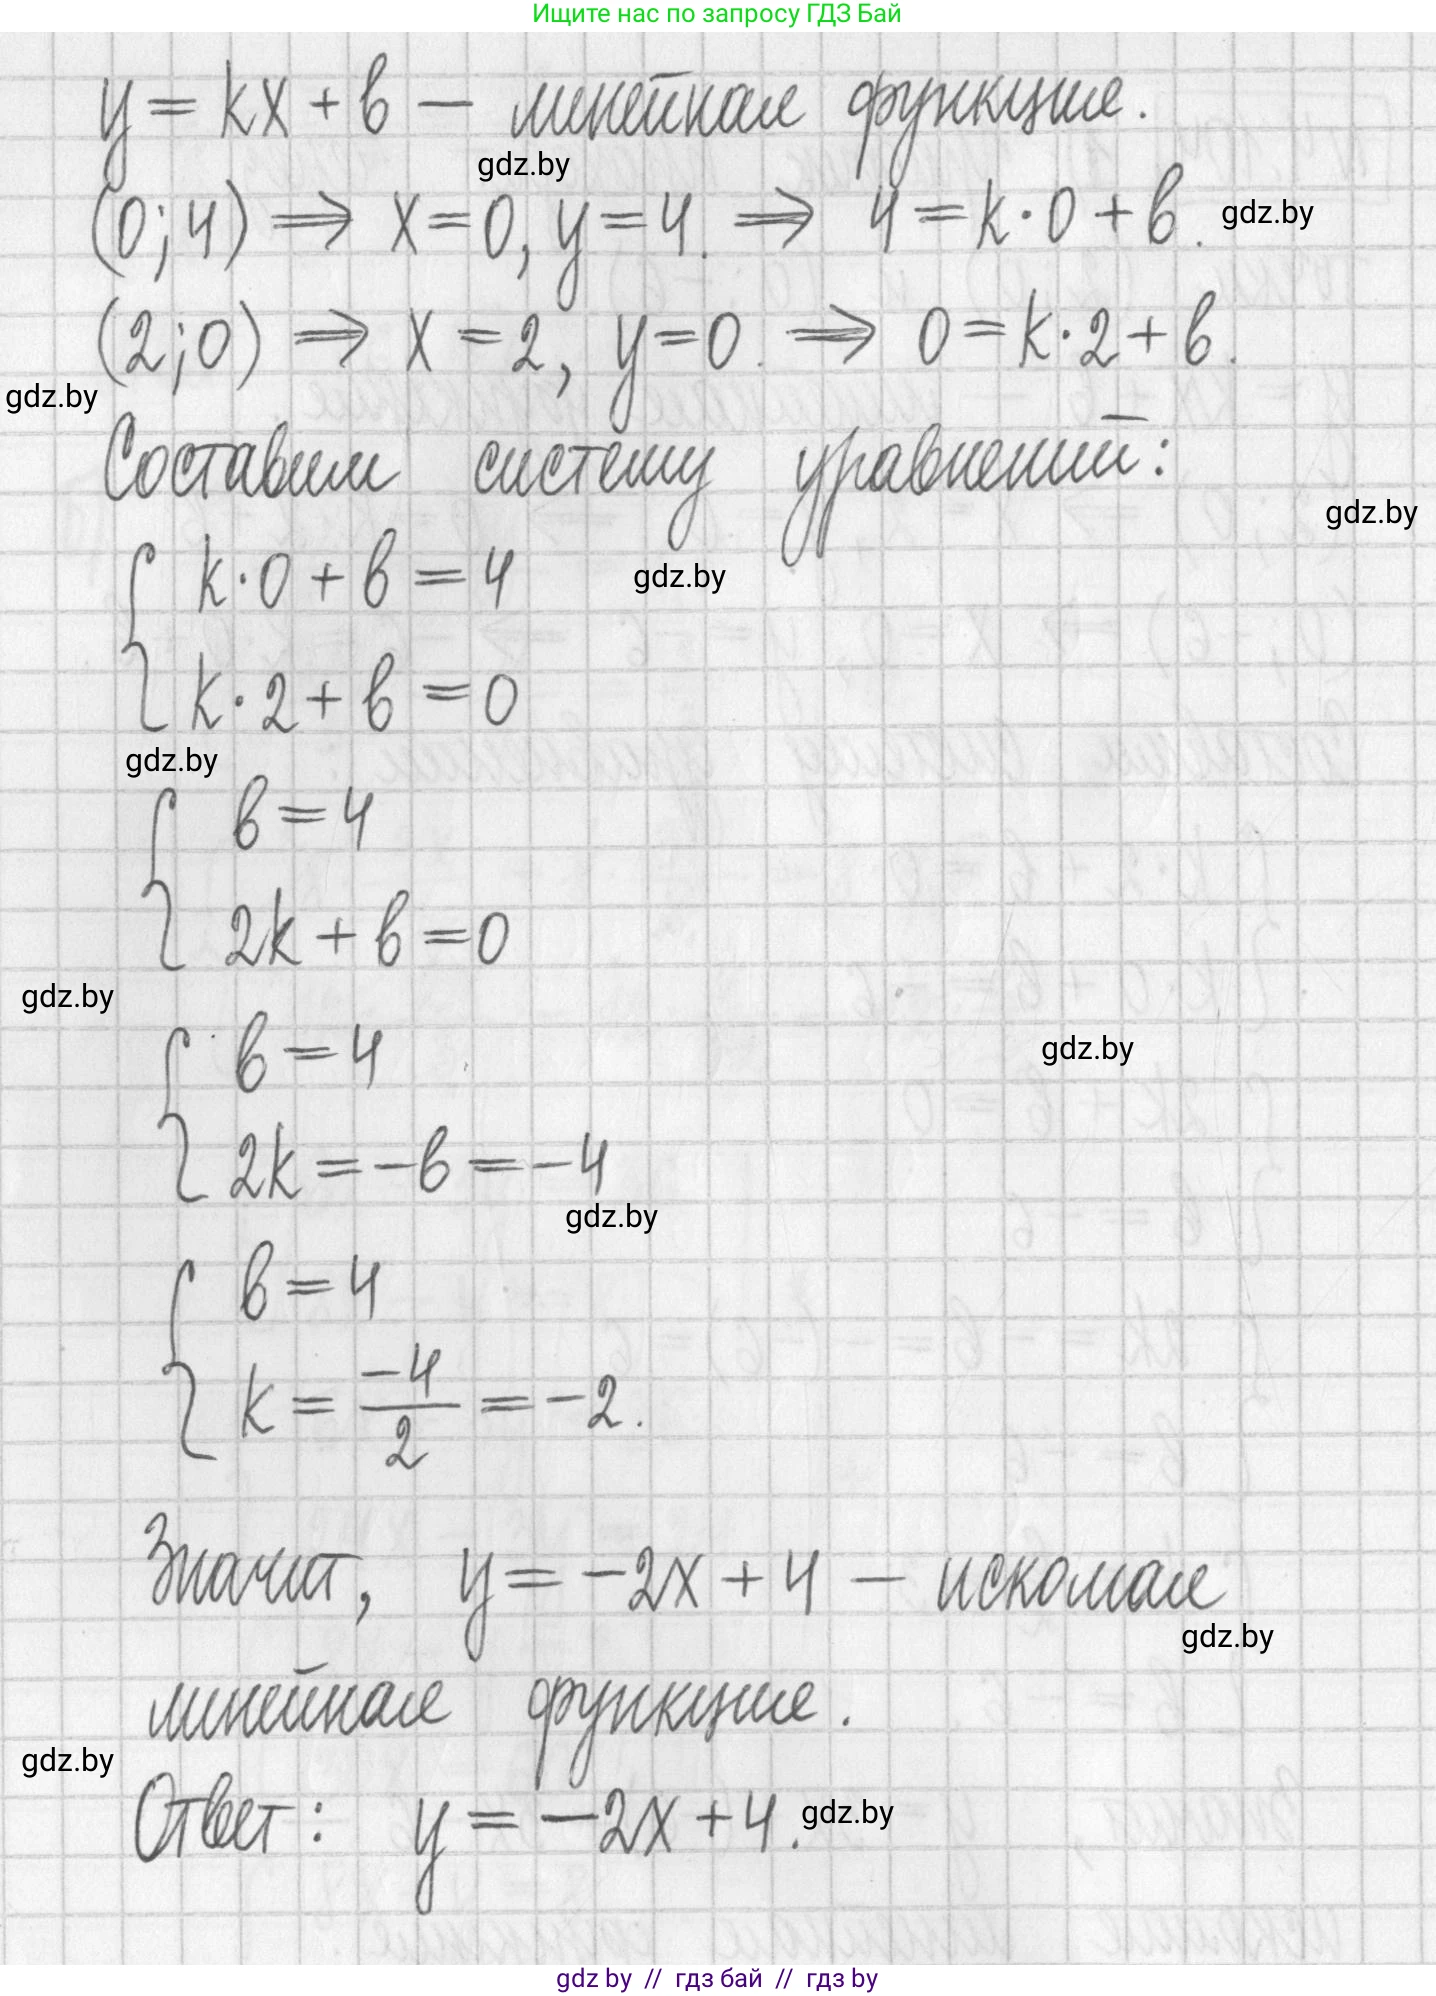 Ищите нас по запросу ГДЗ Бай
y = kx + b — линейная функция.
gdz.by
(0; 4) ⟹ x = 0, y = 4. ⟹ 4 = k · 0 + b.
gdz.by
(2; 0) ⟹ x = 2, y = 0. ⟹ 0 = k · 2 + b.
gdz.by
Составим систему уравнений:
gdz.by
{ k · 0 + b = 4
gdz.by
k · 2 + b = 0
gdz.by
{ b = 4
2k + b = 0
gdz.by
{ b = 4
gdz.by
2k = -b = -4
gdz.by
{ b = 4
k = -4/2 = -2.
Значит, y = -2x + 4 — искомая
gdz.by
линейная функция.
gdz.by
Ответ: y = -2x + 4.
gdz.by
gdz by // гдз бай // гдз by